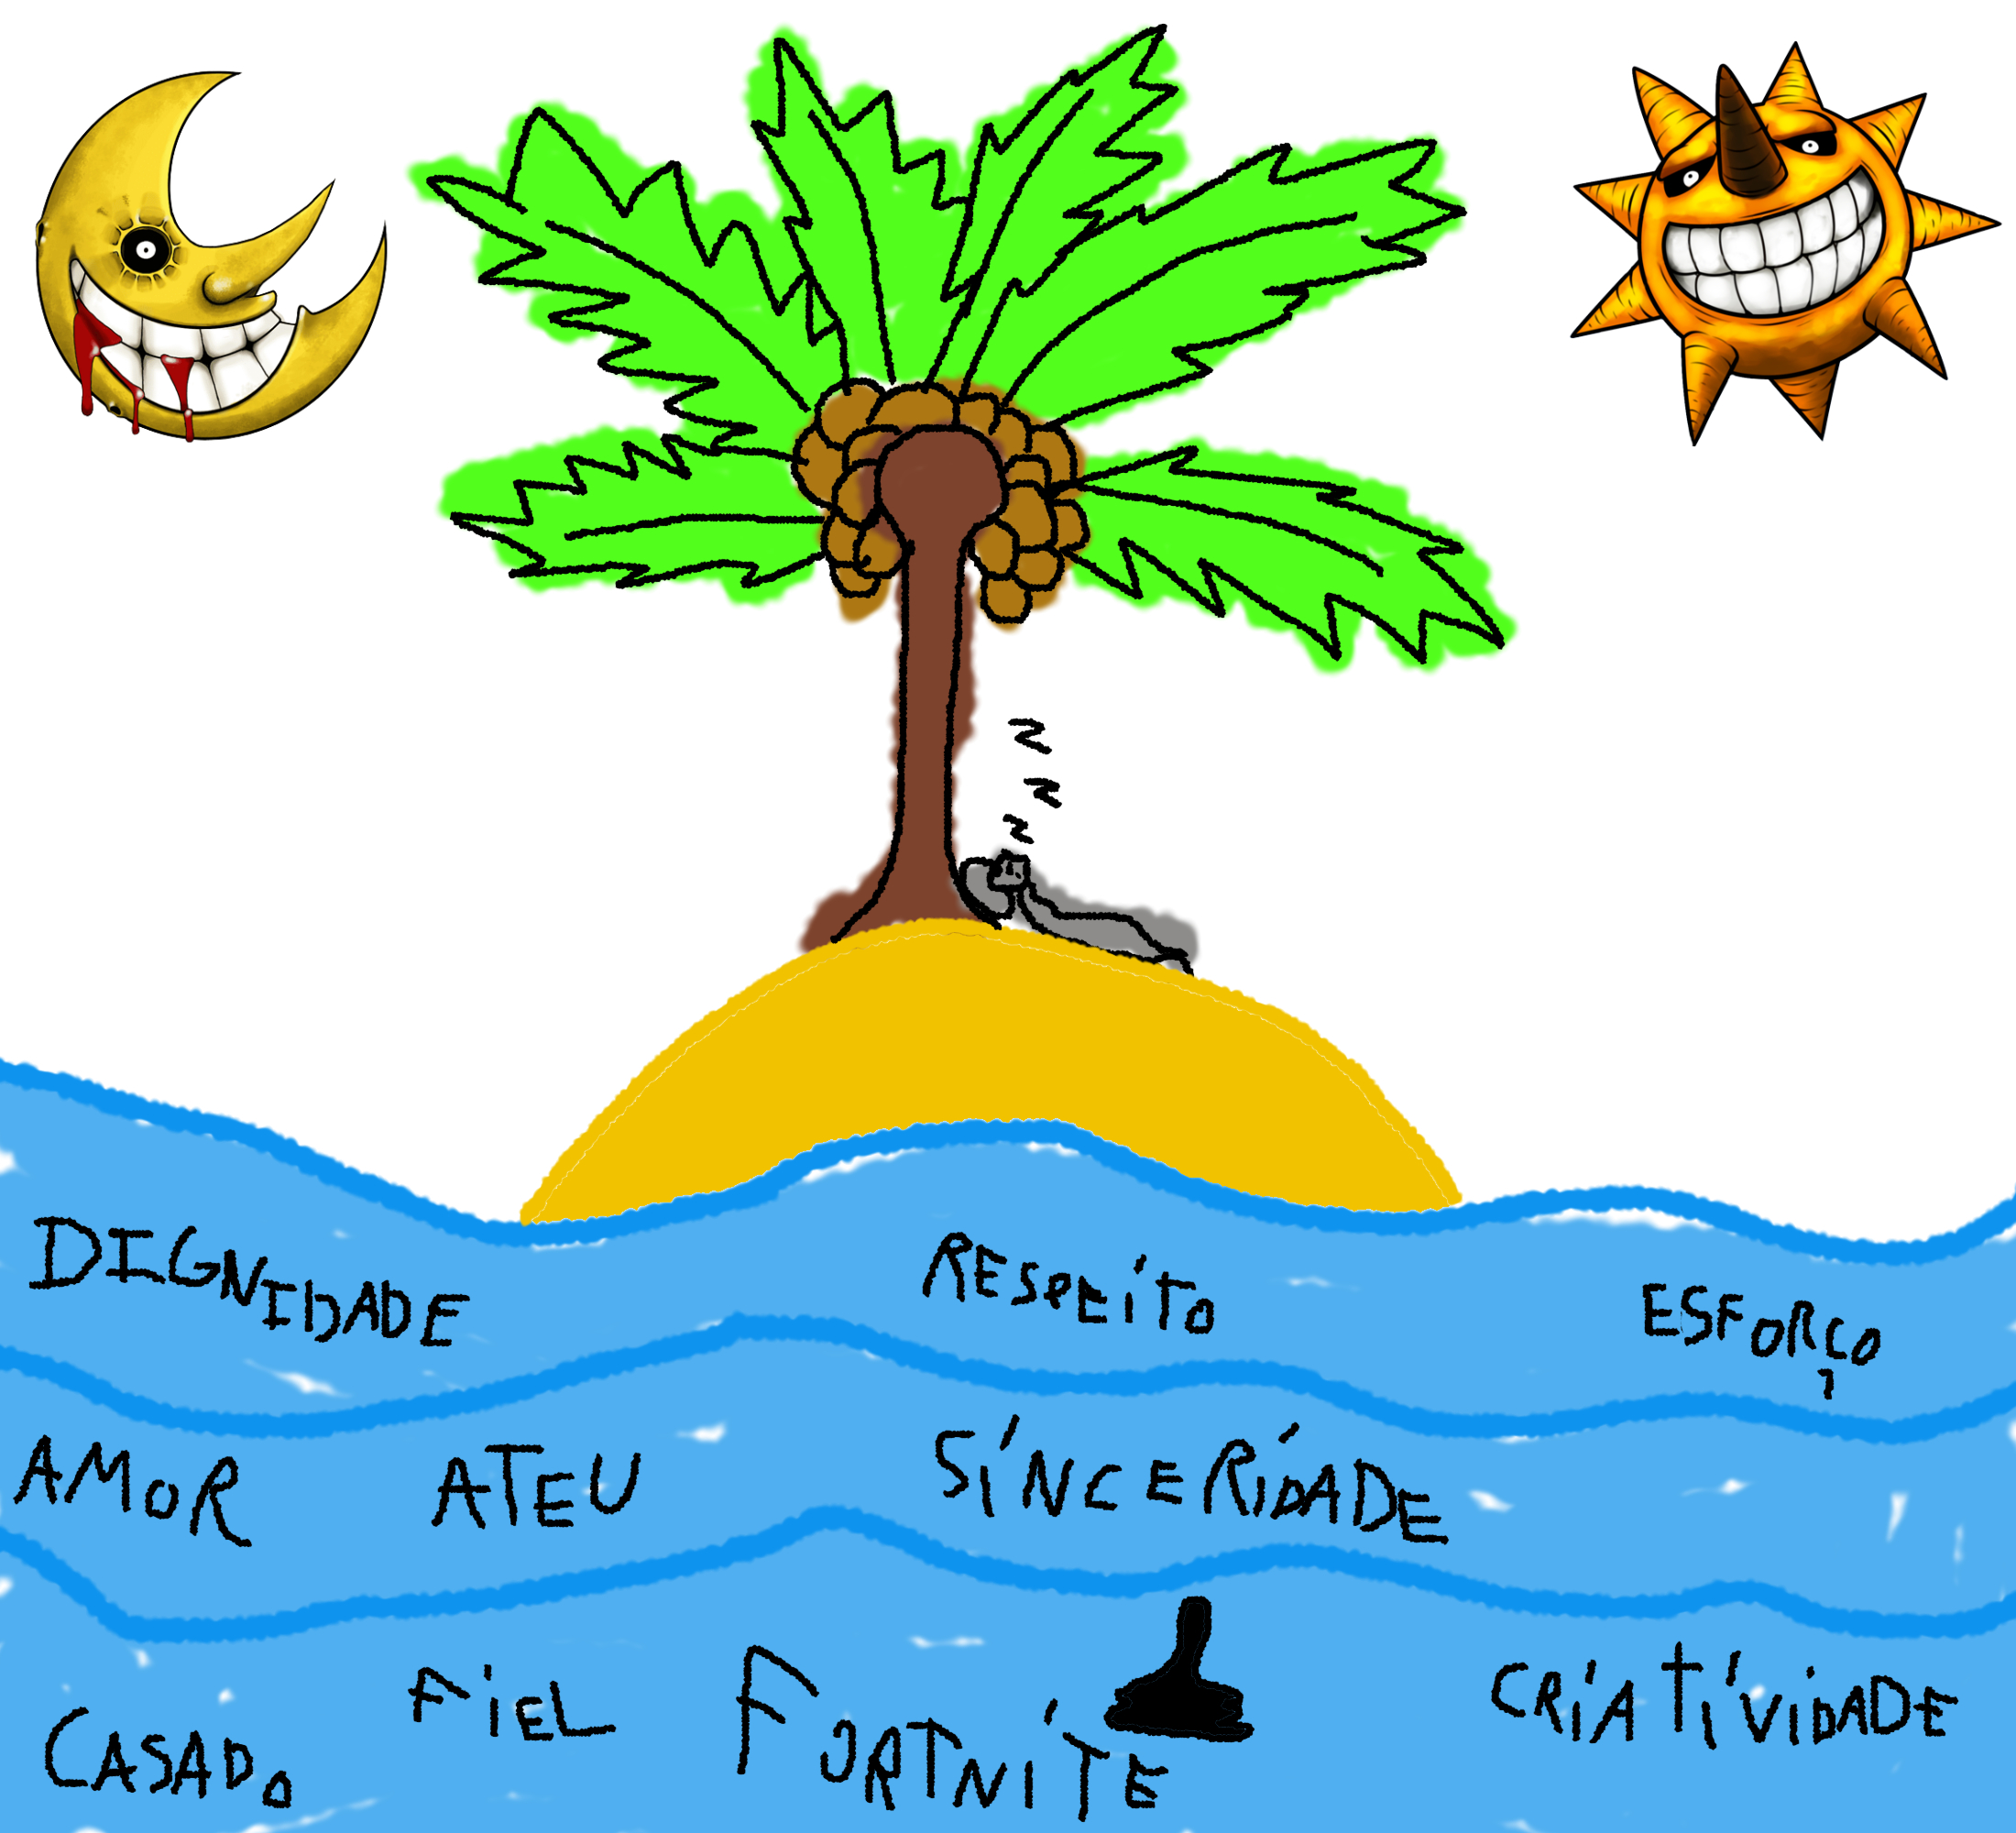 z
z
z
DIGNIDADE RESPEITO ESFORÇO
AMOR ATEU SINCERIDADE
CASADO FIEL FORTNITE CRIATIVIDADE